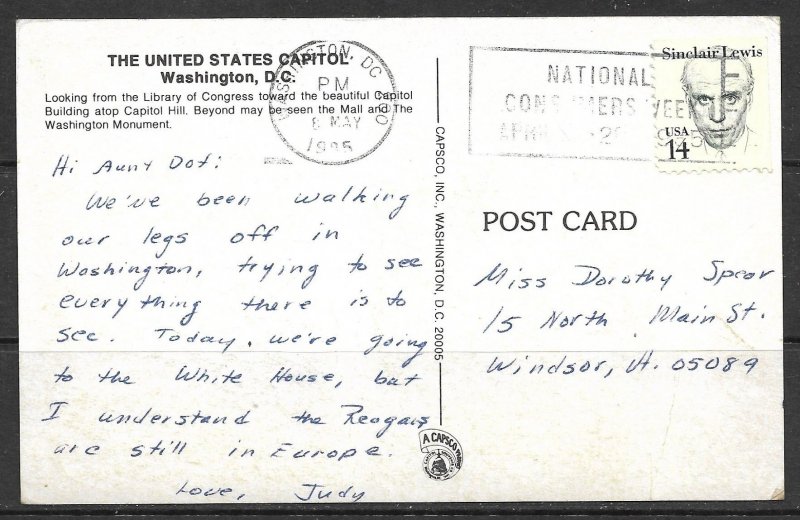 THE UNITED STATES CAPITOL
Washington, D.C.
Looking from the Library of Congress toward the beautiful Capitol
Building atop Capitol Hill. Beyond may be seen the Mall and The
Washington Monument.
Hi Aunt Dot:
We've been walking
our legs off in
Washington, trying to see
everything there is to
see. Today, we're going
to the White House, but
I understand the Reagans
are still in Europe.
Love, Judy
WASHINGTON, DC
PM
8 MAY
1985
CAPSCO, INC., WASHINGTON, D.C. 20005
A CAPSCO
NATIONAL
CONSUMERS WEEK
Sinclair Lewis
USA
14
POST CARD
Miss Dorothy Spear
15 North Main St.
Windsor, Vt. 05089